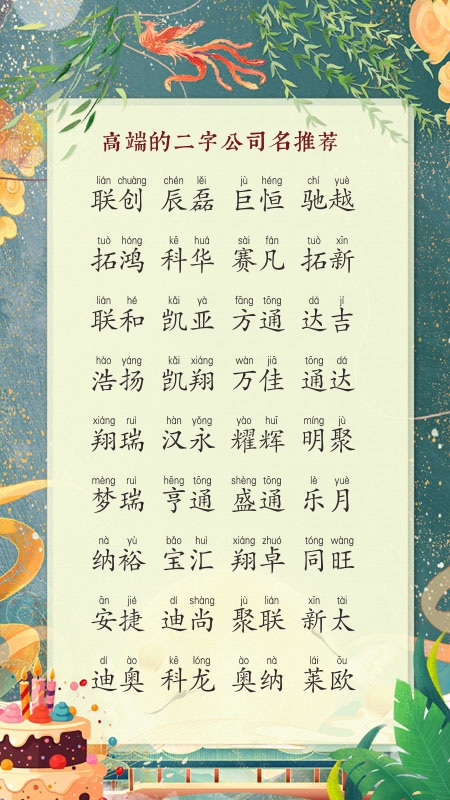 高端的二字公司名推荐
lián chuàng chén lěi jù héng chí yuè
联创 辰磊 巨恒 驰越
tuò hóng kē huá sài fán tuò xīn
拓鸿 科华 赛凡 拓新
lián hé kǎi yà fāng tōng dá jí
联和 凯亚 方通 达吉
hào yáng kǎi xiáng wàn jiā tōng dá
浩扬 凯翔 万佳 通达
xiáng ruì hàn yǒng yào huī míng jù
翔瑞 汉永 耀辉 明聚
mèng ruì hēng tōng shèng tōng lè yuè
梦瑞 亨通 盛通 乐月
nà yù bǎo huì xiáng zhuó tóng wàng
纳裕 宝汇 翔卓 同旺
ān jié dí shàng jù lián xīn tài
安捷 迪尚 聚联 新太
dí ào kē lóng ào nà lái ōu
迪奥 科龙 奥纳 莱欧